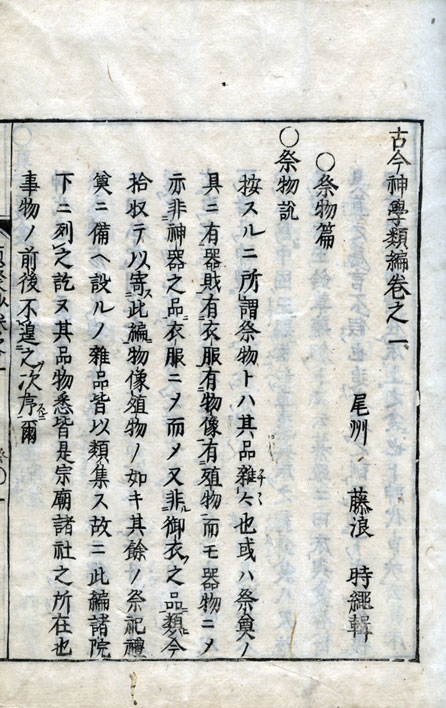 古今神學類編卷之一
尾州 藤浪 時繩輯
○祭物篇
○祭物説
按スルニ所謂祭物トハ其品雜々也或ハ祭奠ノ
具ニ有器貝有衣服有物像有殖物而モ器物ニメ
亦非神器之品衣服ニメ而メ又非御衣之品類今
拾収テ以寄此編物像殖物ノ如キ其餘ノ祭祀禮
奠ニ備ヘ設ルノ雜品皆以類集ス故ニ此編諸院
下ニ列之訖ヌ其品物悉皆是宗廟諸社之所在也
事物ノ前後不遑之次序爾